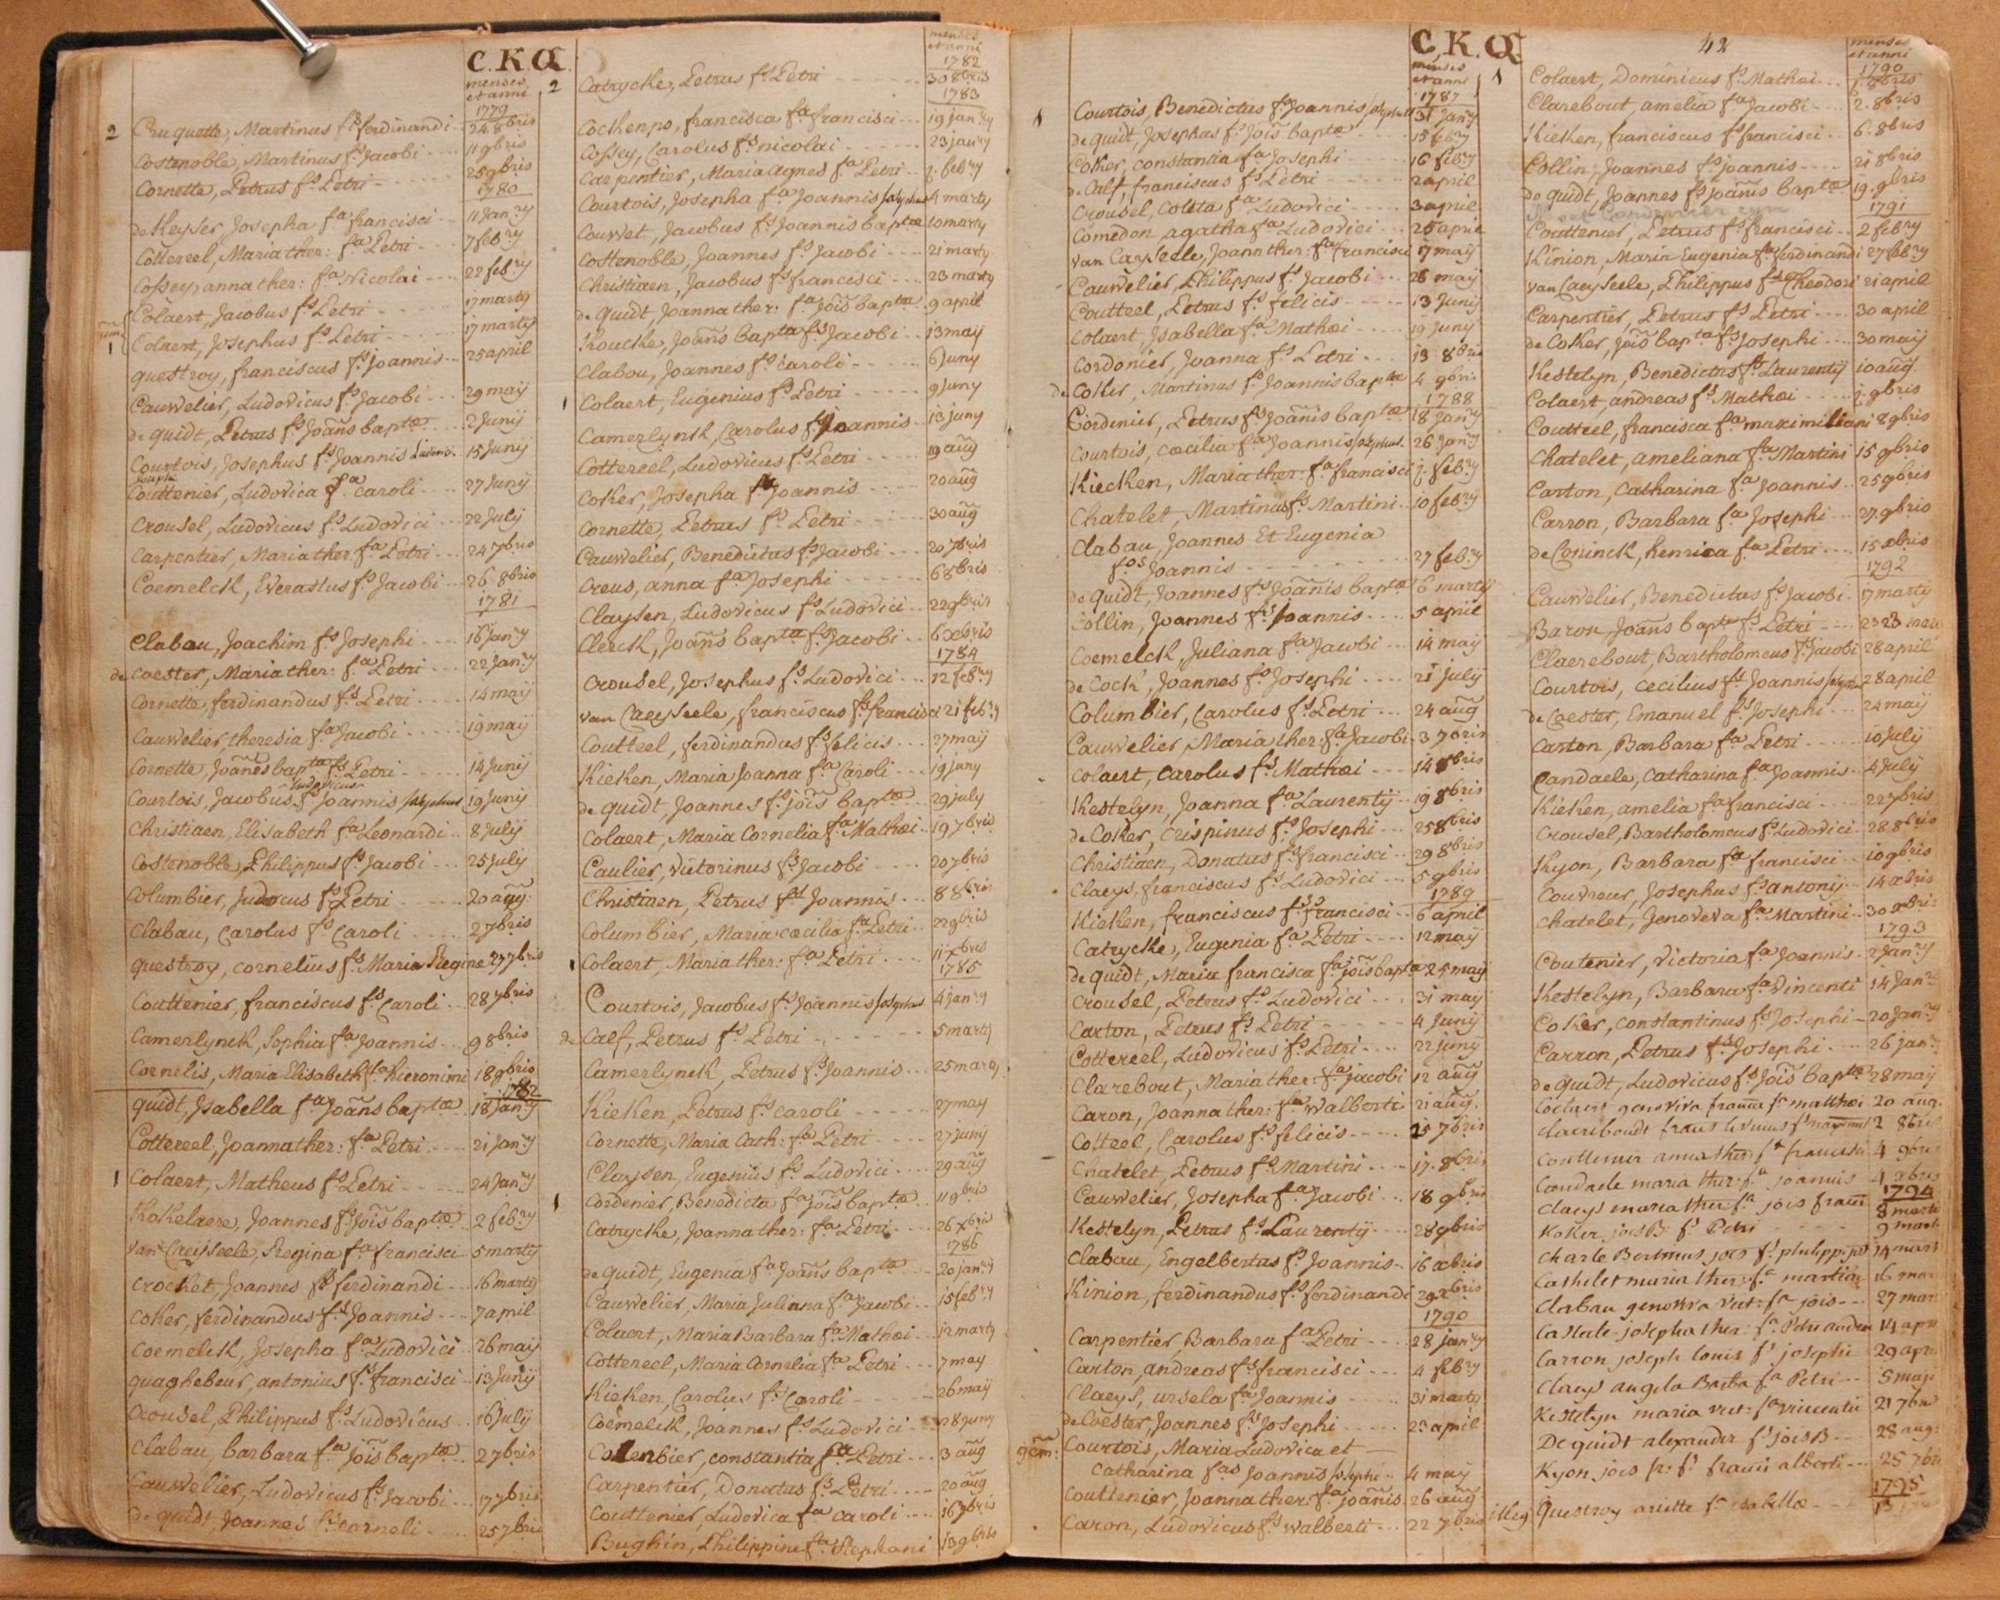 C.K.Q.
menses et anni
1779
2 Cruquette, Martinus fs ferdinandi - - 24 8bris
Costenoble, Martinus fs Jacobi - - - 11 9bris
Cornette, Petrus fs Petri - - - - 25 9bris
1780
de Keyser, Josepha fa francisci - - 11 Janry
Cottereel, Maria ther: fa Petri - - - 7 febry
Cossey, anna ther: fa Nicolai - - - 22 febry
Colaert, Jacobus fs Petri - - - - 17 martij
1 Colaert, Josephus fs Petri - - - - 17 martij
questroy, franciscus fs Joannis - - 25 april
Cauwelier, Ludovicus fs Jacobi - - - 29 maij
de quidt, Petrus fs Joañis baptæ - - - 2 Junij
Courtois, Josephus fs Joannis - - 15 Junij
Couttenier, Ludovica fa caroli - - - 27 Junij
Crousel, Ludovicus fs Ludovici - - - 22 July
Carpentier, Maria ther fa Petri - - 24 7bris
Coemelck, Everastus fs Jacobi - - 26 8bris
1781
Clabau, Joachim fs Josephi - - - 16 Janry
de coester, Maria ther: fa Petri - - - 22 Janry
Cornette, ferdinandus fs Petri - - - 14 maij
Cauwelier theresia fa Jacobi - - - 19 maij
Cornette, Joañes bapta fs Petri - - - 14 Junij
Ludovicus
Courtois, Jacobus fs Joannis Josephus 19 Junij
Christiaen, Elisabeth fa Leonardi - - 8 July
Costenoble, Philippus fs Jacobi - - - 25 July
Columbier, Judocus fs Petri - - - 20 aug
Clabau, Carolus fs Caroli - - - 2 7bris
questroy, cornelius fs Maria Regine 27 7bris
Couttenier, franciscus fs Caroli - - 28 7bris
Camerlynck, Sophia fa Joannis - - - 9 8bris
Cornelis, Maria Elisabeth fa hieronimi 18 9bris
1782
quidt, Isabella fa Joañs baptæ - - 18 Janry
Cottereel, Joanna ther: fa Petri - - - 21 Janry
1 Colaert, Matheus fs Petri - - - - 24 Janry
Kokelaere, Joannes fs Jois baptæ - - 2 febry
van Caeyseele, Regina fa francisci - - 5 martij
crocket, Joannes fs ferdinandi - - - 16 martij
coker, ferdinandus fs Joannis - - - 7 april
coemelck, Josepha fa Ludovici - - - 26 maij
quaghebeur, antonius fs francisci - - 13 Junij
crousel, Philippus fs Ludovicus - - 16 July
Clabau, barbara fa Jois baptæ - - - 2 7bris
Cauwelier, Ludovicus fs Jacobi - - - 17 7bris
de quidt, Joannes fs corneli - - - 25 7bris
menses et anni
1782
2 Catrycke, Petrus fs Petri - - - - 30 8bris
1783
Cockenpo, francisca fa francisci - - 19 janry
Cossey, Carolus fs nicolai - - - - 23 janry
Carpentier, Maria agnes fa Petri - - 2 febry
Courtois, Josepha fa Joannis Josephus 4 marty
Couvvet, Jacobus fs Joannis baptæ 10 marty
Costenoble, Joannes fs Jacobi - - - 21 marty
Christiaen, Jacobus fs francisci - - 23 marty
de quidt, Joanna ther: fa Jois baptæ 9 april
Koucke, Joañs bapta fs Jacobi - - 13 maij
Clabou, Joannes fs Caroli - - - - 6 Juny
1 Colaert, Eugenius fs Petri - - - - 9 Juny
Camerlynck, Carolus fs Joannis - - 13 juny
Cottereel, Ludovicus fs Petri - - - 19 aug
Coker, Josepha fa Joannis - - - 20 aug
Cornette, Petrus fs Petri - - - - 30 aug
Cauwelier, Benedictus fs Jacobi - - 20 7bris
Creus, anna fa Josephi - - - - 6 8bris
Claysen, Ludovicus fs Ludovici - - 22 9bris
Clerck, Joañs bapta fs Jacobi - - 6 Xbris
1784
Crousel, Josephus fs Ludovici - - - 12 febry
van Caeyseele, franciscus fs francisci 21 febry
Coutteel, ferdinandus fs felicis - - 27 maij
Kieken, Maria Joanna fa Caroli - - 19 juny
de quidt, Joannes fs jois baptæ - - 29 july
Colaert, Maria Cornelia fa Mathæi - - 19 7bris
Caulier, Victorinus fs Jacobi - - - 20 7bris
Christiaen, Petrus fs Joannis - - - 8 8bris
Columbier, Maria cæcilia fa Petri - - 22 9bris
1 Colaert, Maria ther: fa Petri - - - 11 Xbris
1785
Courtois, Jacobus fs Joannis Josephus 4 janry
de Calf, Petrus fs Petri - - - - - 5 marty
Camerlynck, Petrus fs Joannis - - - 25 marty
Kieken, Petrus fs caroli - - - - 27 may
Cornette, Maria Cath: fa Petri - - - 27 juny
Claysen, Eugenius fs Ludovici - - - 29 aug
1 Cordenier, Benedicta fa jois baptæ - - 11 9bris
Catrycke, Joanna ther: fa Petri - - 26 Xbris
1786
de quidt, Eugenia fa Joañs baptæ - - 20 janry
Cauwelier, Maria Juliana fa Jacobi - - 15 febry
Colaert, Maria Barbara fa Mathæi - - 12 marty
Cottereel, Maria Cornelia fa Petri - - 7 may
Kieken, Carolus fs Caroli - - - - 26 maij
Coemelck, Joannes fs Ludovici - - 28 juny
Colenbier, constantia fa Petri - - - 3 aug
Carpentier, Donatus fs Petri - - - 20 aug
Couttenier, Ludovica fa caroli - - - 16 7bris
Bughin, Philippine fa Stephani 13 9bris
C.K.Q.
menses et anni
1787
1 Courtois, Benedictus fs Joannis Josephus 31 janry
de quidt, Josephus fs Jois baptæ - - - 15 febry
Coker, constantia fa Josephi - - - 16 febry
de Calf, franciscus fs Petri - - - - 2 april
Crousel, Coleta fa Ludovici - - - - 3 april
Comedon, agatha fa Ludovici - - - 25 april
van Cayseele, Joanna ther: fa francisci 17 maij
Cauwelier, Philippus fs Jacobi - - - 28 maij
Coutteel, Petrus fs felicis - - - - 13 Junij
Colaert, Isabella fa Mathæi - - - - 19 Junij
Cordonier, Joanna fa Petri - - - 13 8bris
de Coker, Martinus fs Joannis baptæ 4 9bris
1788
Cordenier, Petrus fs Joañis baptæ 18 Janry
Courtois, cæcilia fa Joannis Josephus 26 janry
Kiecken, Maria ther: fa francisci 2 febry
Chatelet, Martinus fs Martini - - 10 febry
Clabau, Joannes Et Eugenia
fos Joannis - - - - - - - 27 febry
de quidt, Joannes fs Joañis baptæ 6 martij
Collin, Joannes fs Joannis - - - - 5 april
Coemelck, Juliana fa Jacobi - - 14 maij
de Cock, Joannes fs Josephi - - - 21 july
Columbier, Carolus fs Petri - - - 24 aug
Cauwelier, Maria ther: fa Jacobi - 3 7bris
Colaert, Carolus fs Mathæi - - - 14 8bris
Kestelyn, Joanna fa Laurentij - - 19 8bris
de Coker, Crispinus fs Josephi - - - 25 8bris
Christiaen, Donatus fs francisci - - 29 8bris
Claeys, franciscus fs Ludovici - - - 5 9bris
1789
Kieken, franciscus fs francisci - - 6 april
Catrycke, Eugenia fa Petri - - - 12 maij
de quidt, Maria francisca fa jois bapta 25 maij
Crousel, Petrus fs Ludovici - - - 31 maij
Carton, Petrus fs Petri - - - - 4 Junij
Cottereel, Ludovicus fs Petri - - - 22 juny
Clarebout, Maria ther: fa jacobi 12 aug
Caron, Joanna ther: fa walberti 21 aug.
Cotteel, Carolus fs felicis - - - 25 7bris
Chatelet, Petrus fs Martini - - - 17. 8bris
Cauwelier, Josepha fa Jacobi - - - 18 9bris
Kestelyn, Petrus fs Laurentij - - - 28 9bris
Clabau, Engelbertus fs Joannis - - 16 xbris
Kinion, ferdinandus fs ferdinandi 29 xbris
1790
Carpentier, Barbara fa Petri - - - 28 janry
Carton, andreas fs francisci - - - 4 febry
Claeys, ursela fa Joannis - - - - 31 marty
de Coester, Joannes fs Josephi - - - 23 april
gem: Courtois, Maria Ludovica et
Catharina fas Joannis Josephi - - 4 may
Couttenier, Joanna ther: fa joañis 26 aug
Caron, Ludovicus fs walberti - - - 22 7bris
42
menses et anni
1790
1 Colaert, Dominicus fs Mathæi - - 1 8bris
Clarebout, amelia fa Jacobi - - - 2. 8bris
Kieken, franciscus fs francisci - - 6. 8bris
Collin, Joannes fs joannis - - - 21 8bris
de quidt, Joannes fs Joañis baptæ 19. 9bris
1791
Couttenier, Petrus fs francisci - - 2 febry
Kinion, Maria Eugenia fa ferdinandi 27 febry
van Caeyseele, Philippus fs Theodori 21 april
Carpentier, Petrus fs Petri - - - 30 april
de Coker, jois bapta fs Josephi - - - 30 maij
Kestelyn, Benedictus fs Laurentij 10 aug
Colaert, andreas fs Mathæi - - - 2. 9bris
Coutteel, francisca fa maximiliani 8 9bris
Chatelet, ameliana fa Martini 15 9bris
Carton, Catharina fa Joannis - - 25 9bris
Carron, Barbara fa Josephi - - - 27. 9bris
de Coninck, henrica fa Petri - - - 15 xbris
1792
Cauwelier, Benedictus fs Jacobi - 17 marty
Baron, Joañs bapta fs Petri - - - 23
Claerebout, Bartholomeus fs Jacobi 28 april
Courtois, Cecilius fs Joannis Josephus 28 april
de Coester, Emanuel fs Josephi - - - 24 maij
Carton, Barbara fa Petri - - - - 10 July
Candaele, Catharina fa Joannis - - 4 July
Kieken, amelia fa francisci - - - 22 7bris
Crousel, Bartholomeus fs Ludovici 28 8bris
Kyon, Barbara fa francisci - - - 10 9bris
Couvreur, Josephus fs antonij - - 14 xbris
Chatelet, Genoveva fa Martini - - 30 xbris
1793
Coutenier, Victoria fa Joannis - 2 Janry
Kestelyn, Barbara fa Vincenti 14 Janry
Coker, constantinus fs Josephi - 20 Janry
Carron, Petrus fs Josephi - - - 26 janry
de quidt, Ludovicus fs Jois baptæ 28 maij
Colaert genoviva fa matthæi 20 aug.
2 8bris
Couttenier anna ther: fa francisci 4 9bris
Candaele maria ther: fa joannis 4 xbris
1794
Claeys maria ther fa jois 8 marti
Koker jois B: fs Petri - - - - 9 marti
14 mart
Cathelet maria ther: fa martini 16 mar
Clabau genoviva vict: fa jois - - 27 mar
14 apri
Carron joseph louis fs josephi 29 apri
Claeys angela Barba fa Petri - - 5 maji
Kestelyn maria vict: fa vincentii 21 7bri
De quidt alexander fs jois B - - 28 aug:
Kyon jois 25 7bri
1795
illeg Questroy ariette fa isabellæ - - 13